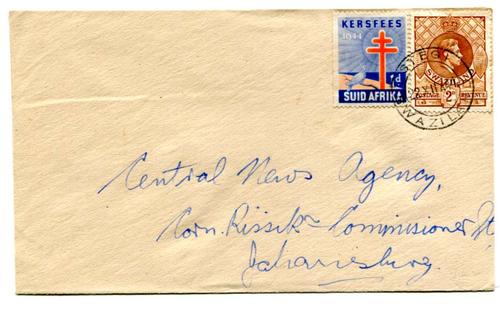 KERSFEES
1944
d
SUID AFRIKA
SWAZILAND
POSTAGE REVENUE
2
Central News Agency,
Corn. Rissik Commisioner St
Johannesburg.